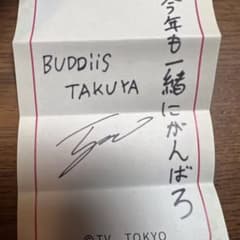 今年も一緒にがんばろ
BUDDiiS
TAKUYA
©TV TOKYO